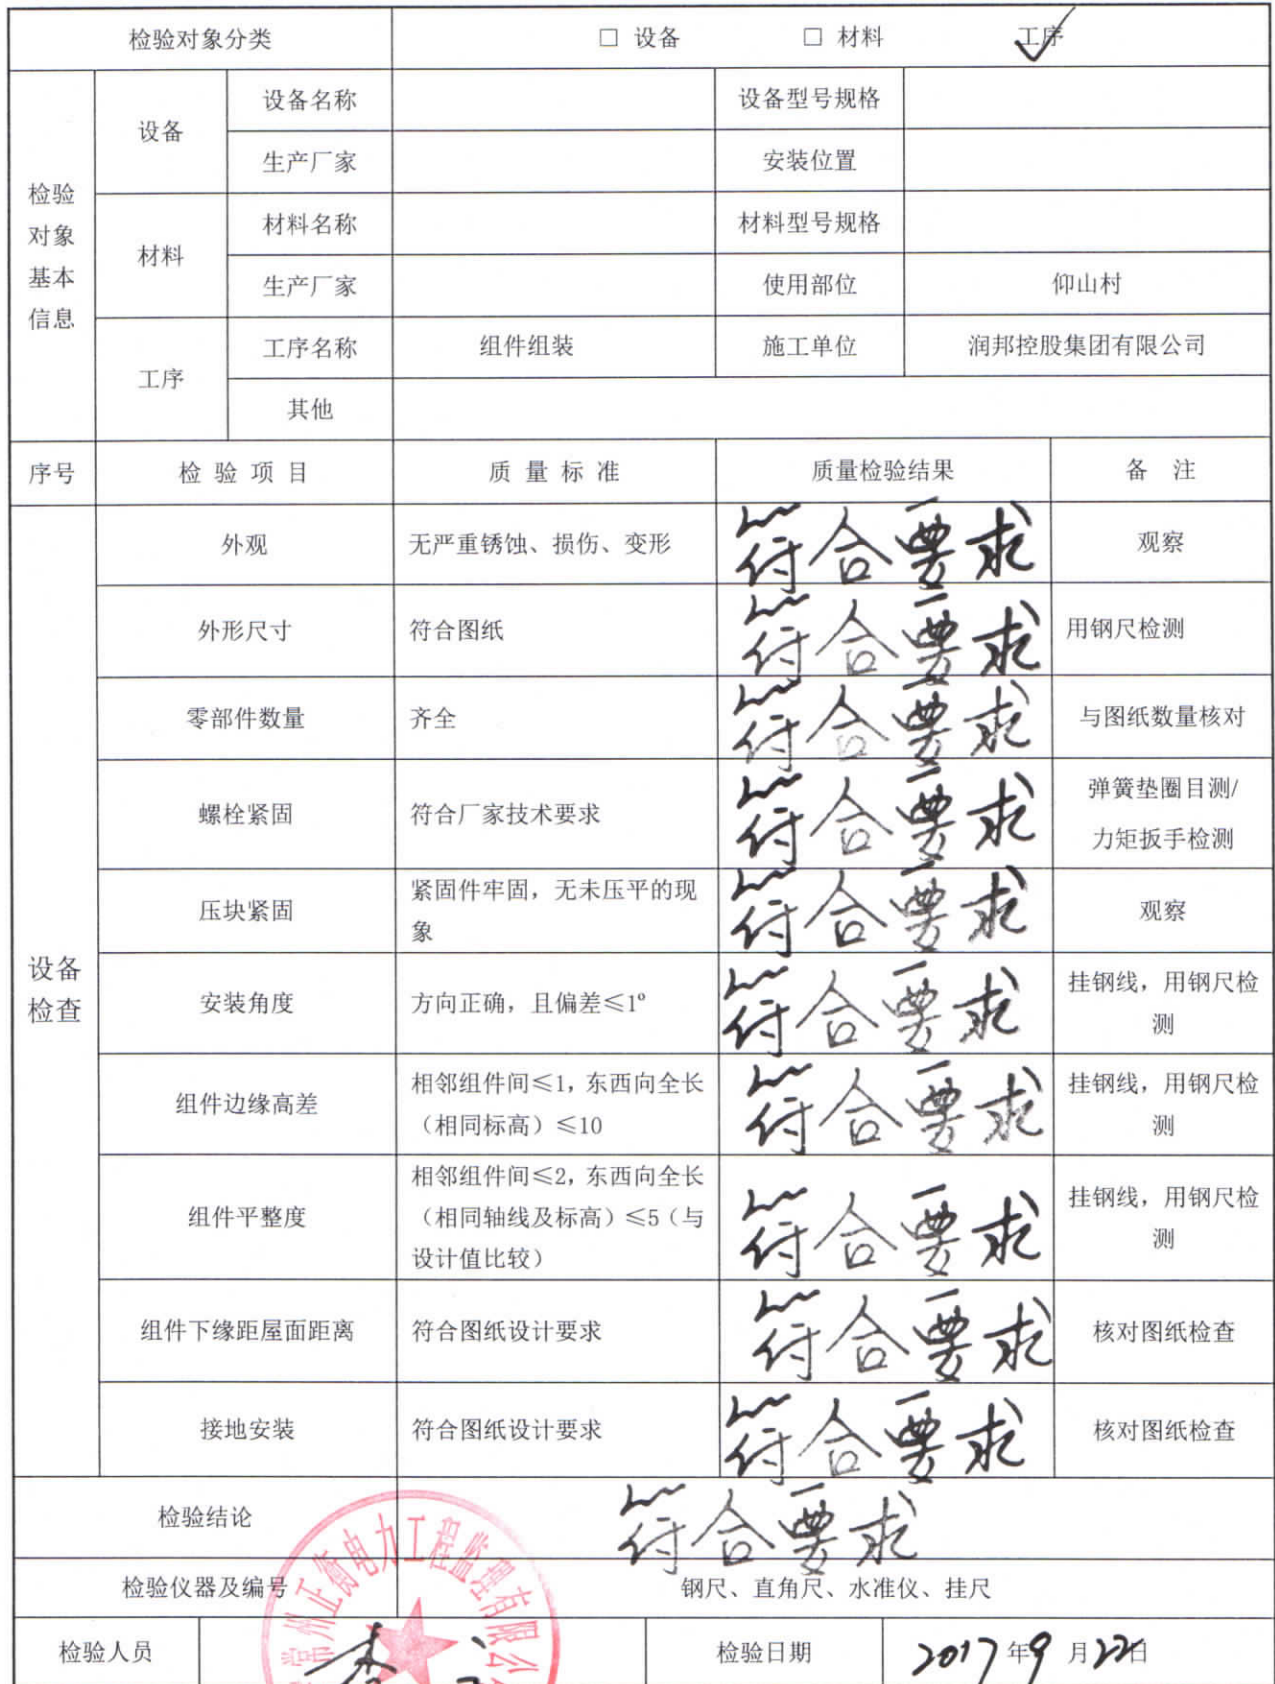 检验对象分类 □ 设备 □ 材料 工序
检验对象基本信息
设备 设备名称 设备型号规格
生产厂家 安装位置
材料 材料名称 材料型号规格
生产厂家 使用部位 仰山村
工序 工序名称 组件组装 施工单位 润邦控股集团有限公司
其他
序号 检验项目 质量标准 质量检验结果 备注
设备检查
外观 无严重锈蚀、损伤、变形 符合要求 观察
外形尺寸 符合图纸 符合要求 用钢尺检测
零部件数量 齐全 符合要求 与图纸数量核对
螺栓紧固 符合厂家技术要求 符合要求 弹簧垫圈目测/
力矩扳手检测
压块紧固 紧固件牢固，无未压平的现
象 符合要求 观察
安装角度 方向正确，且偏差≤1° 符合要求 挂钢线，用钢尺检
测
组件边缘高差 相邻组件间≤1，东西向全长
（相同标高）≤10 符合要求 挂钢线，用钢尺检
测
组件平整度 相邻组件间≤2，东西向全长
（相同轴线及标高）≤5（与
设计值比较） 符合要求 挂钢线，用钢尺检
测
组件下缘距屋面距离 符合图纸设计要求 符合要求 核对图纸检查
接地安装 符合图纸设计要求 符合要求 核对图纸检查
检验结论 符合要求
检验仪器及编号 钢尺、直角尺、水准仪、挂尺
常州正衡电力工程监理有限公
检验人员 检验日期 2017年9月22日